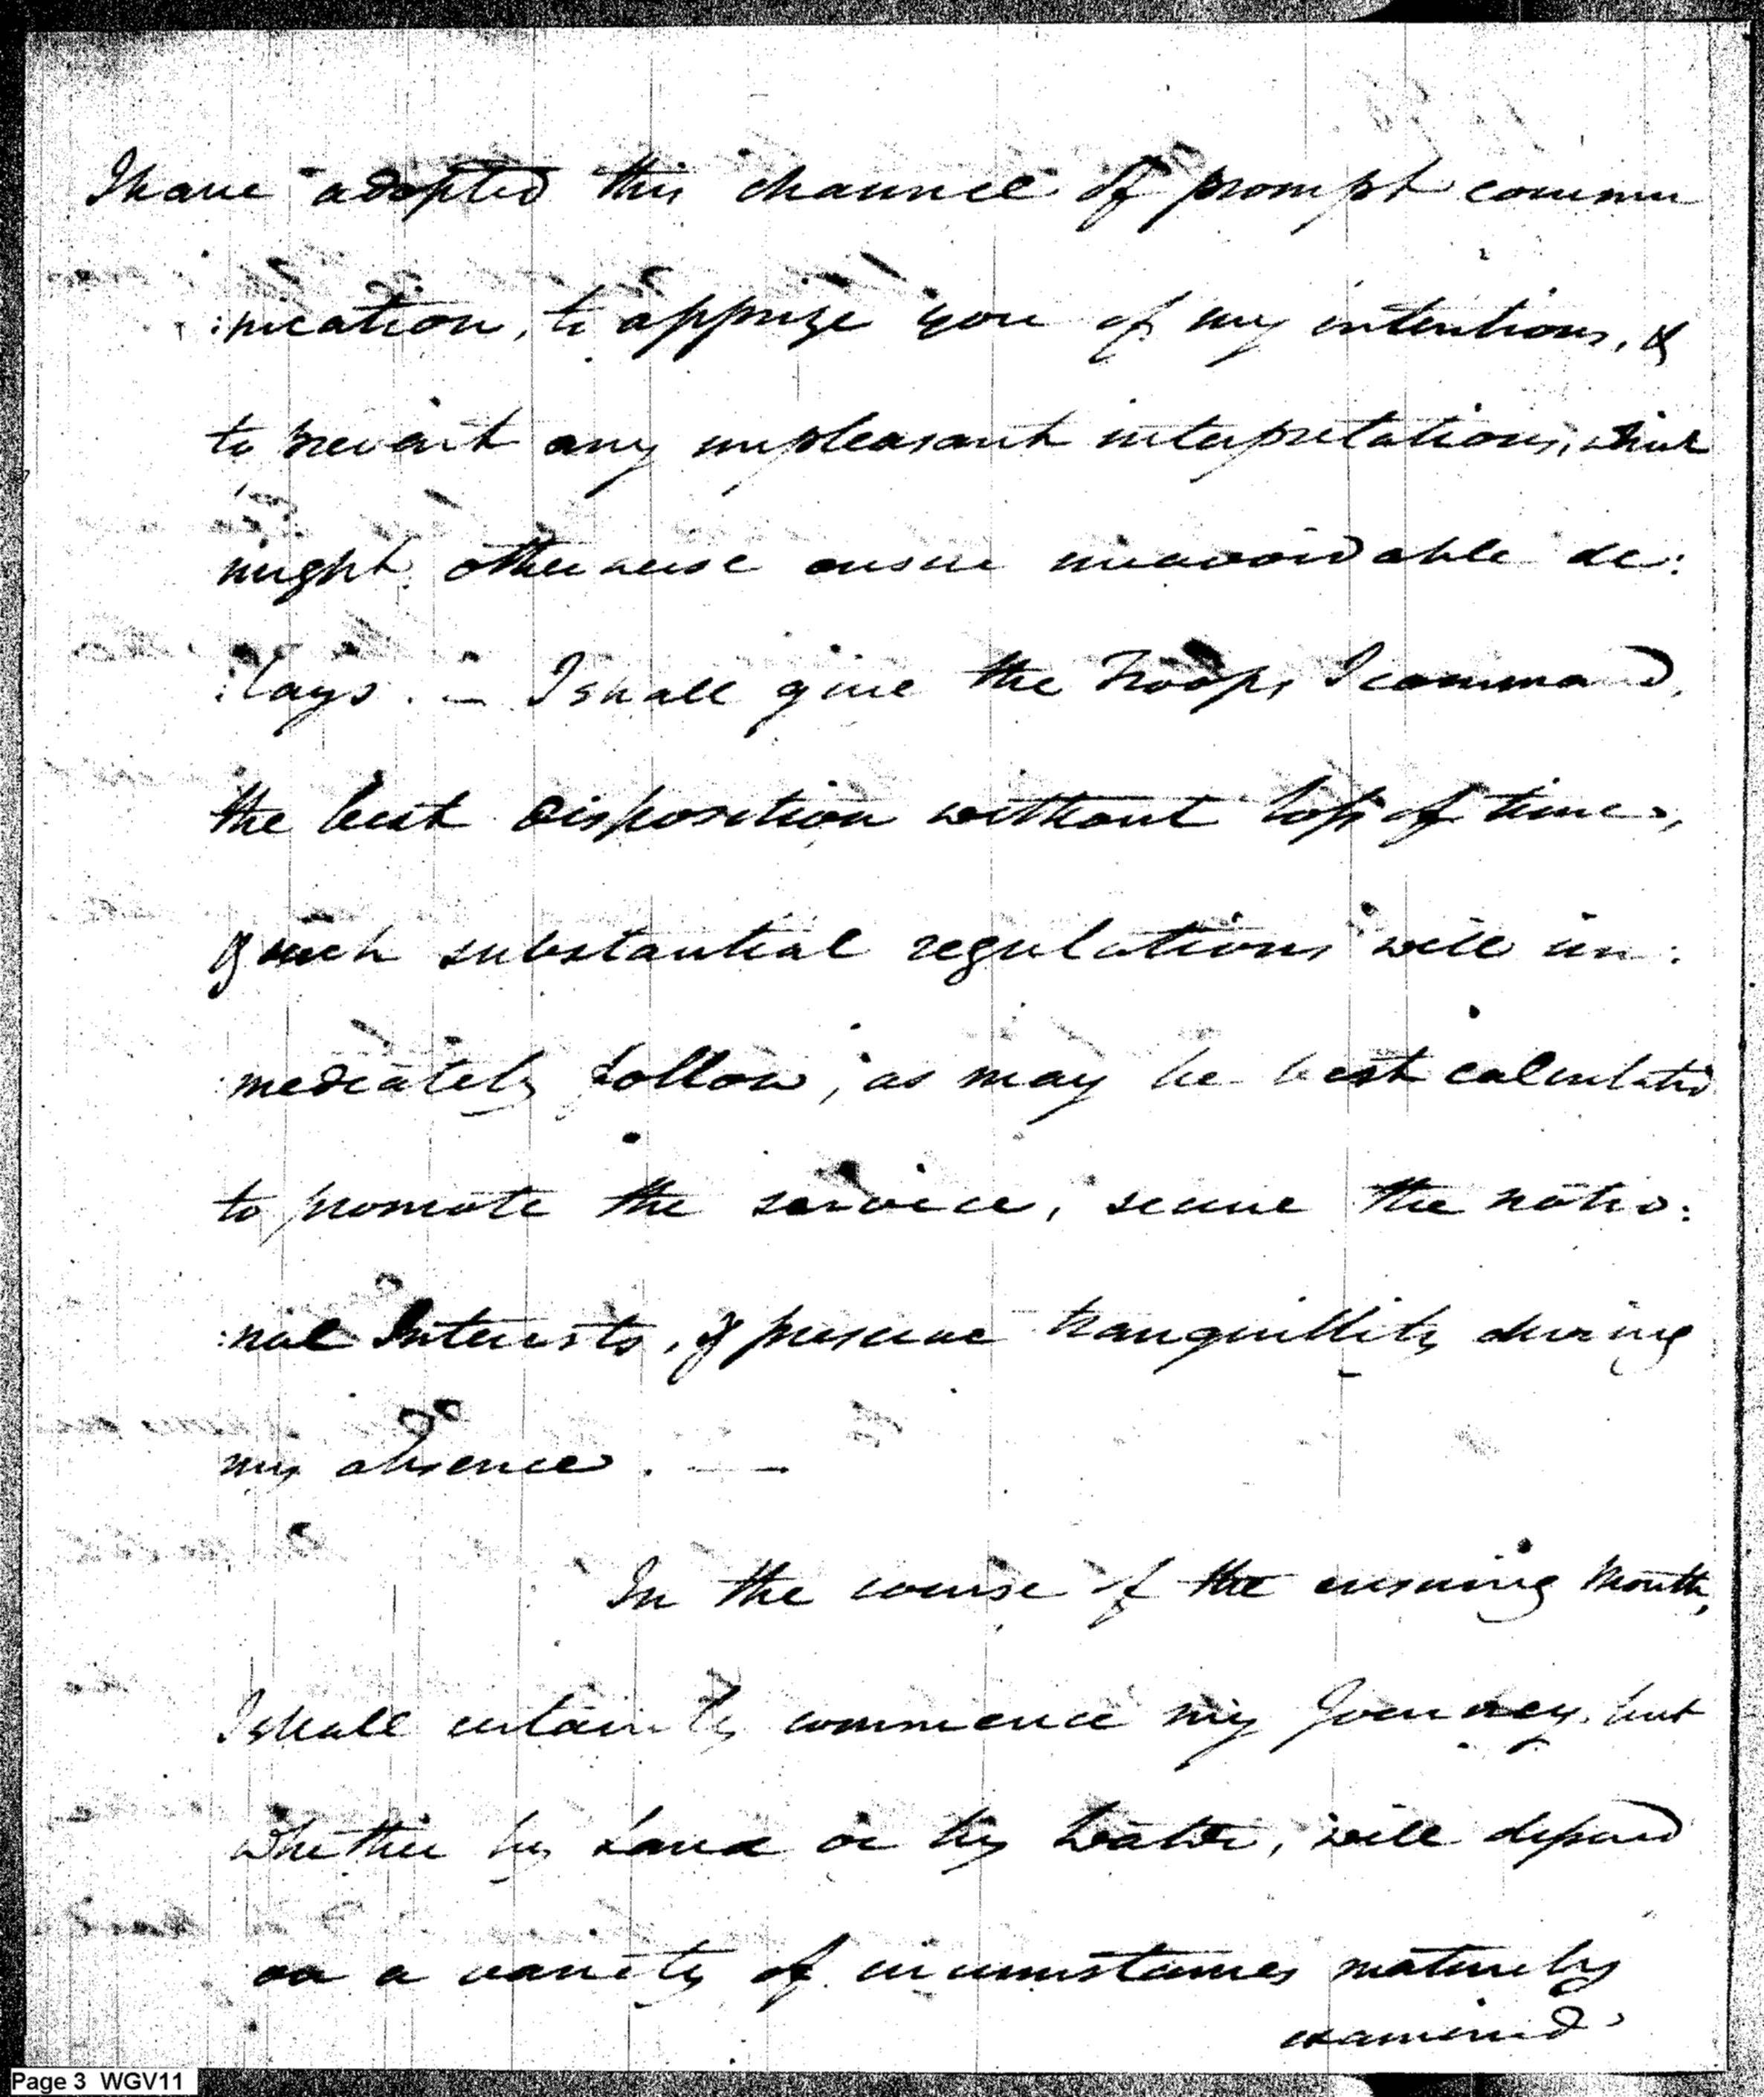 I have adopted this channel of prompt commu
:nication, to apprize you of my intentions, &
to prevent any unpleasant interpretations, which
might otherwise ensue unavoidable de:
:lays. — I shall give the Troops I command,
the best disposition without loss of time,
& such substantial regulations will im:
:mediately follow, as may be best calculated
to promote the service, secure the natio:
:nal Interests, & preserve tranquillity during
my absence. —
In the course of the ensuing Month,
I shall certainly commence my Journey, but
whether by Land or by Water, will depend
on a variety of circumstances maturely
examined
Page 3 WGV11